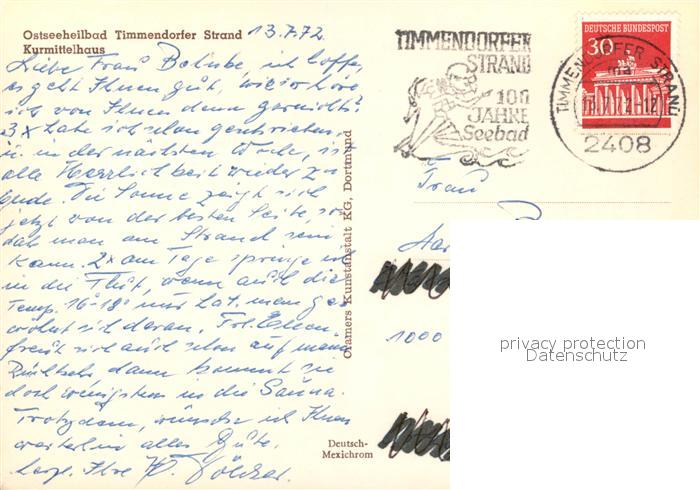 Ostseeheilbad Timmendorfer Strand
Kurmittelhaus
13.7.72
Liebe Frau Behnke, ich hoffe,
es geht Ihnen gut, wieso höre
ich von Ihnen denn garnichts?
3x habe ich schon geschrieben,
u. in der nächsten Woche, ist
alle Herrlichkeit wieder zu
Ende. Die Sonne zeigt sich
jetzt von der besten Seite, so
daß man am Strand sein
kann. 2x am Tage springe ich
in die Flut, wenn auch die
Temp. 16-18° nur hat, man ge-
wöhnt sich daran. Frl.
freut sich auch schon auf meine
Rückkehr, dann kommt sie
doch wenigstens in die Sauna.
Trotzdem, wünsche ich Ihnen
weiterhin alles Gute.
herzl. Ihre
Cramers Kunstanstalt KG, Dortmund
Deutsch-
Mexichrom
TIMMENDORFER
STRAND
100
JAHRE
Seebad
DEUTSCHE BUNDESPOST
30
TIMMENDORFER STRAND
2408
Frau
1000
privacy protection
Datenschutz